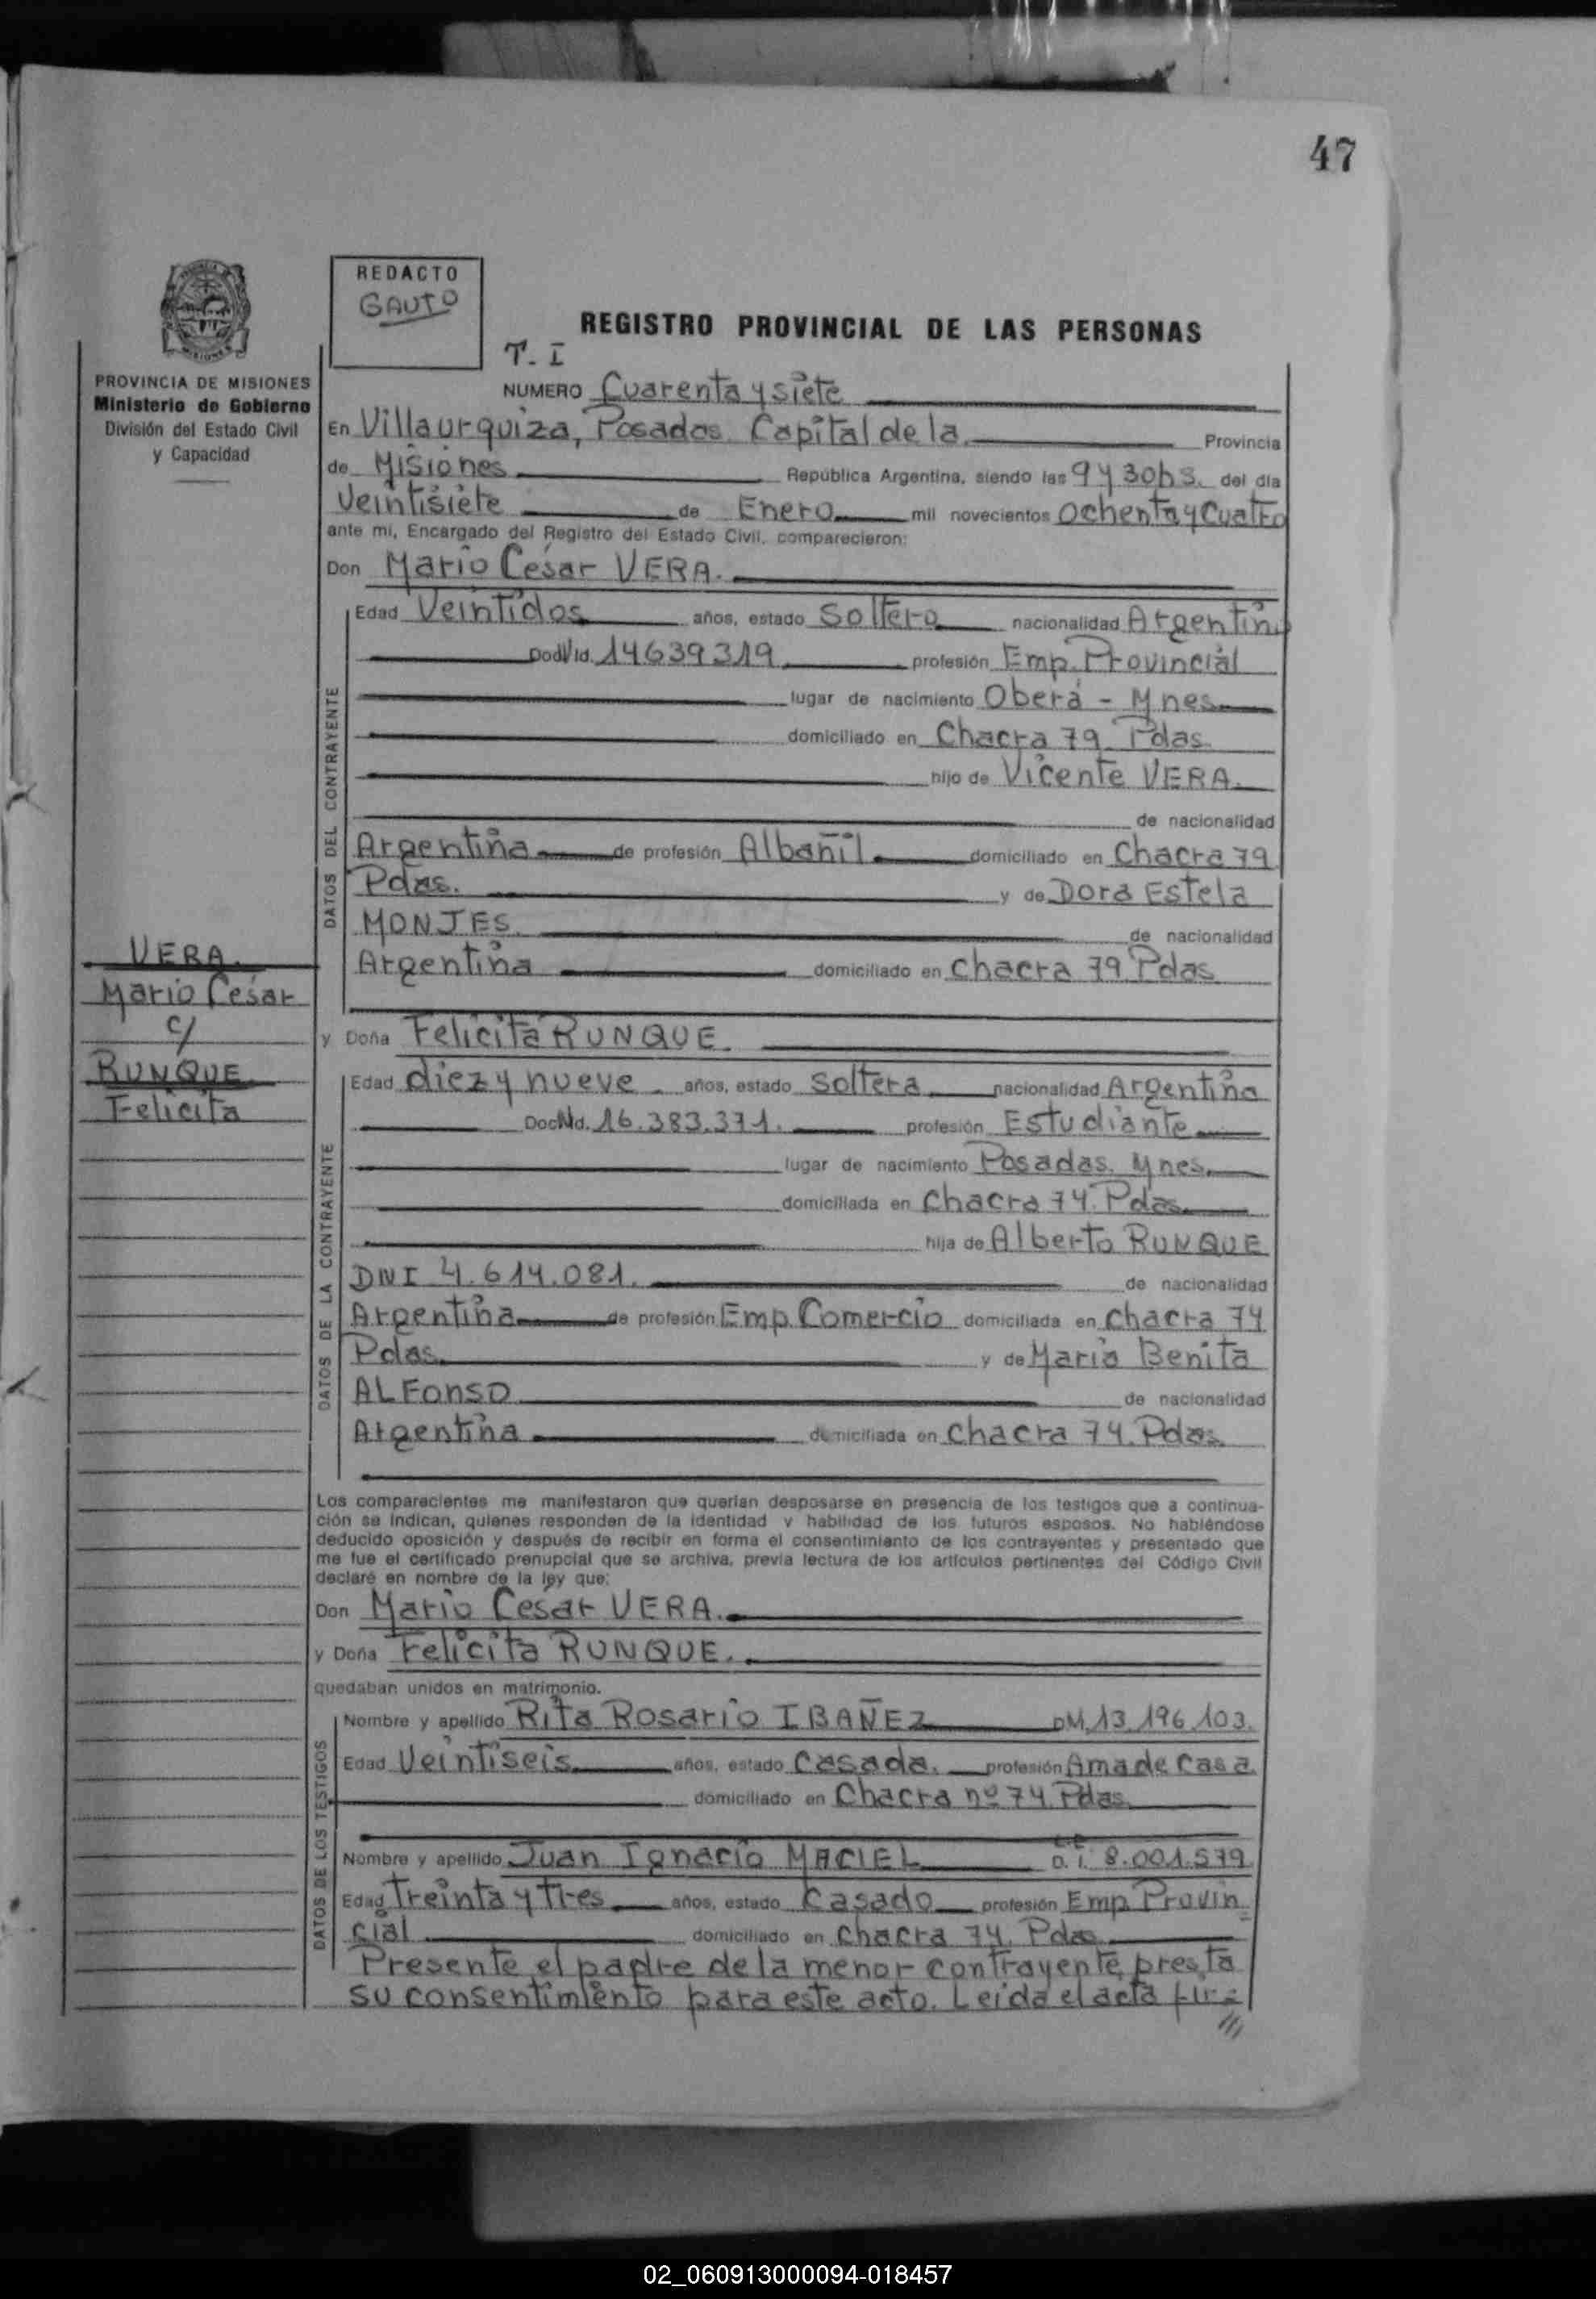 47
REDACTO
GAUTO
REGISTRO PROVINCIAL DE LAS PERSONAS
T. I
PROVINCIA DE MISIONES
Ministerio de Gobierno
División del Estado Civil
y Capacidad
NUMERO Cuarenta y siete
En Villa urquiza, Posadas Capital de la Provincia
de Misiones República Argentina, siendo las 9 y 30 hs. del día
Veintisiete de Enero mil novecientos ochenta y cuatro
ante mí, Encargado del Registro del Estado Civil, comparecieron:
Don Mario César VERA.
DATOS DEL CONTRAYENTE
Edad Veintidos años, estado Soltero nacionalidad Argentina
Doc. Id. 14639319 profesión Emp. Provincial
lugar de nacimiento Oberá - Mnes.
domiciliado en Chacra 79. Pdas.
hijo de Vicente VERA.
de nacionalidad
Argentina de profesión Albañil. domiciliado en Chacra 79
Pdas. y de Dora Estela
MONJES. de nacionalidad
Argentina domiciliado en Chacra 79. Pdas.
VERA.
Mario César
c/
RUNQUE
Felicita
y Doña Felicita RUNQUE.
DATOS DE LA CONTRAYENTE
Edad diez y nueve años, estado Soltera nacionalidad Argentina
Doc. Id. 16.383.371. profesión Estudiante
lugar de nacimiento Posadas. Mnes.
domiciliada en Chacra 74. Pdas.
hija de Alberto RUNQUE
DNI 4.614.081. de nacionalidad
Argentina de profesión Emp. Comercio domiciliada en Chacra 74
Pdas. y de Maria Benita
ALFONSO de nacionalidad
Argentina domiciliada en Chacra 74. Pdas.
Los comparecientes me manifestaron que querían desposarse en presencia de los testigos que a continua-
ción se indican, quienes responden de la identidad y habilidad de los futuros esposos. No habiéndose
deducido oposición y después de recibir en forma el consentimiento de los contrayentes y presentado que
me fue el certificado prenupcial que se archiva, previa lectura de los artículos pertinentes del Código Civil
declaré en nombre de la ley que:
Don Mario César VERA.
y Doña Felicita RUNQUE.
quedaban unidos en matrimonio.
DATOS DE LOS TESTIGOS
Nombre y apellido Rita Rosario IBAÑEZ DNI. 13.196.103.
Edad Veintiseis años, estado Casada. profesión Ama de casa.
domiciliado en Chacra nº 74. Pdas.
Nombre y apellido Juan Ignacio MACIEL D. I. 8.001.579
Edad Treinta y tres años, estado Casado profesión Emp. Provin
cial domiciliado en Chacra 74. Pdas.
Presente el padre de la menor contrayente presta
su consentimiento para este acto. Leida el acta fir=
///
02_060913000094-018457